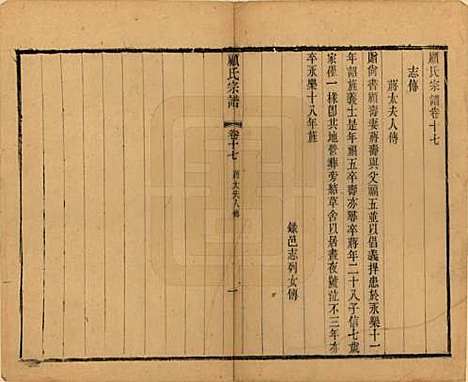 顧氏宗譜卷十七
志傳
蔣太夫人傳
贈尚書顧壽妻蔣壽與父顧五並以倡義捍患於永樂十一
年詔旌義士是年顧五卒壽亦卒蔣年二十八子信七歲
家僅一樣卽其地營葬旁結草舍以居晝夜號泣不三年亦
卒永樂十八年旌
錄邑志列女傳
顧氏宗譜
卷十七
蔣太夫人傳
一